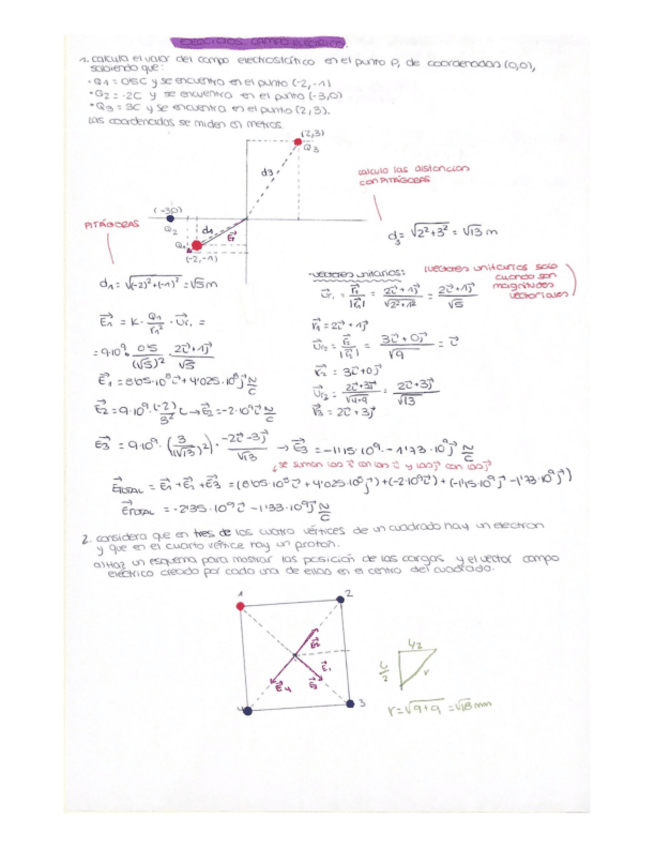 EJERCICIOS CAMPO ELÉCTRICO
1. calcula el valor del campo electrostático en el punto P, de coordenadas (0,0),
sabiendo que:
· Q1 = 0'5C y se encuentra en el punto (-2,-1)
· Q2 = -2C y se encuentra en el punto (-3,0)
· Q3 = 3C y se encuentra en el punto (2,3).
Las coordenadas se miden en metros.
(2,3)
Q3
d3
calculo las distancias
con PITÁGORAS
(-3,0)
Q2
d1
Q1
E1
(-2,-1)
PITÁGORAS
d3 = √2²+3² = √13 m
d1 = √(-2)²+(-1)² = √5 m
vectores unitarios:
(vectores unitarios solo
cuando son
magnitudes
vectoriales)
Ur1 = r1/|r1| = 2i+1j/√2²+1² = 2i+1j/√5
E1 = K · Q1/r1² · Ur1 =
r1 = 2i + 1j
= 9·10⁹ · 0'5/(√5)² · 2i+1j/√5
Ur2 = r2/|r2| = 3i+0j/√9 = i
r2 = 3i+0j
E1 = 8'05·10⁸ i + 4'025·10⁸ j N/C
Ur3 = 2i+3j/√4+9 = 2i+3j/√13
E2 = 9·10⁹ · (-2)/3² i → E2 = -2·10⁹ i N/C
r3 = 2i + 3j
E3 = 9·10⁹ · (3/(√13)²) · -2i-3j/√13 → E3 = -1'15·10⁹ - 1'73·10⁹ j N/C
se suman los i con los i y los j con los j
ETOTAL = E1 + E2 + E3 = (8'05·10⁸ i + 4'025·10⁸ j) + (-2·10⁹ i) + (-1'15·10⁹ i - 1'73·10⁹ j)
ETOTAL = -2'35·10⁹ i - 1'33·10⁹ j N/C
2. considera que en tres de los cuatro vértices de un cuadrado hay un electron
y que en el cuarto vértice hay un protón.
a) Haz un esquema para mostrar las posición de las cargas y el vector campo
eléctrico creado por cada una de ellas en el centro del cuadrado.
1
2
E2
E1
E4
E3
4
3
L/2
L/2
r
r = √9+9 = √18 mm